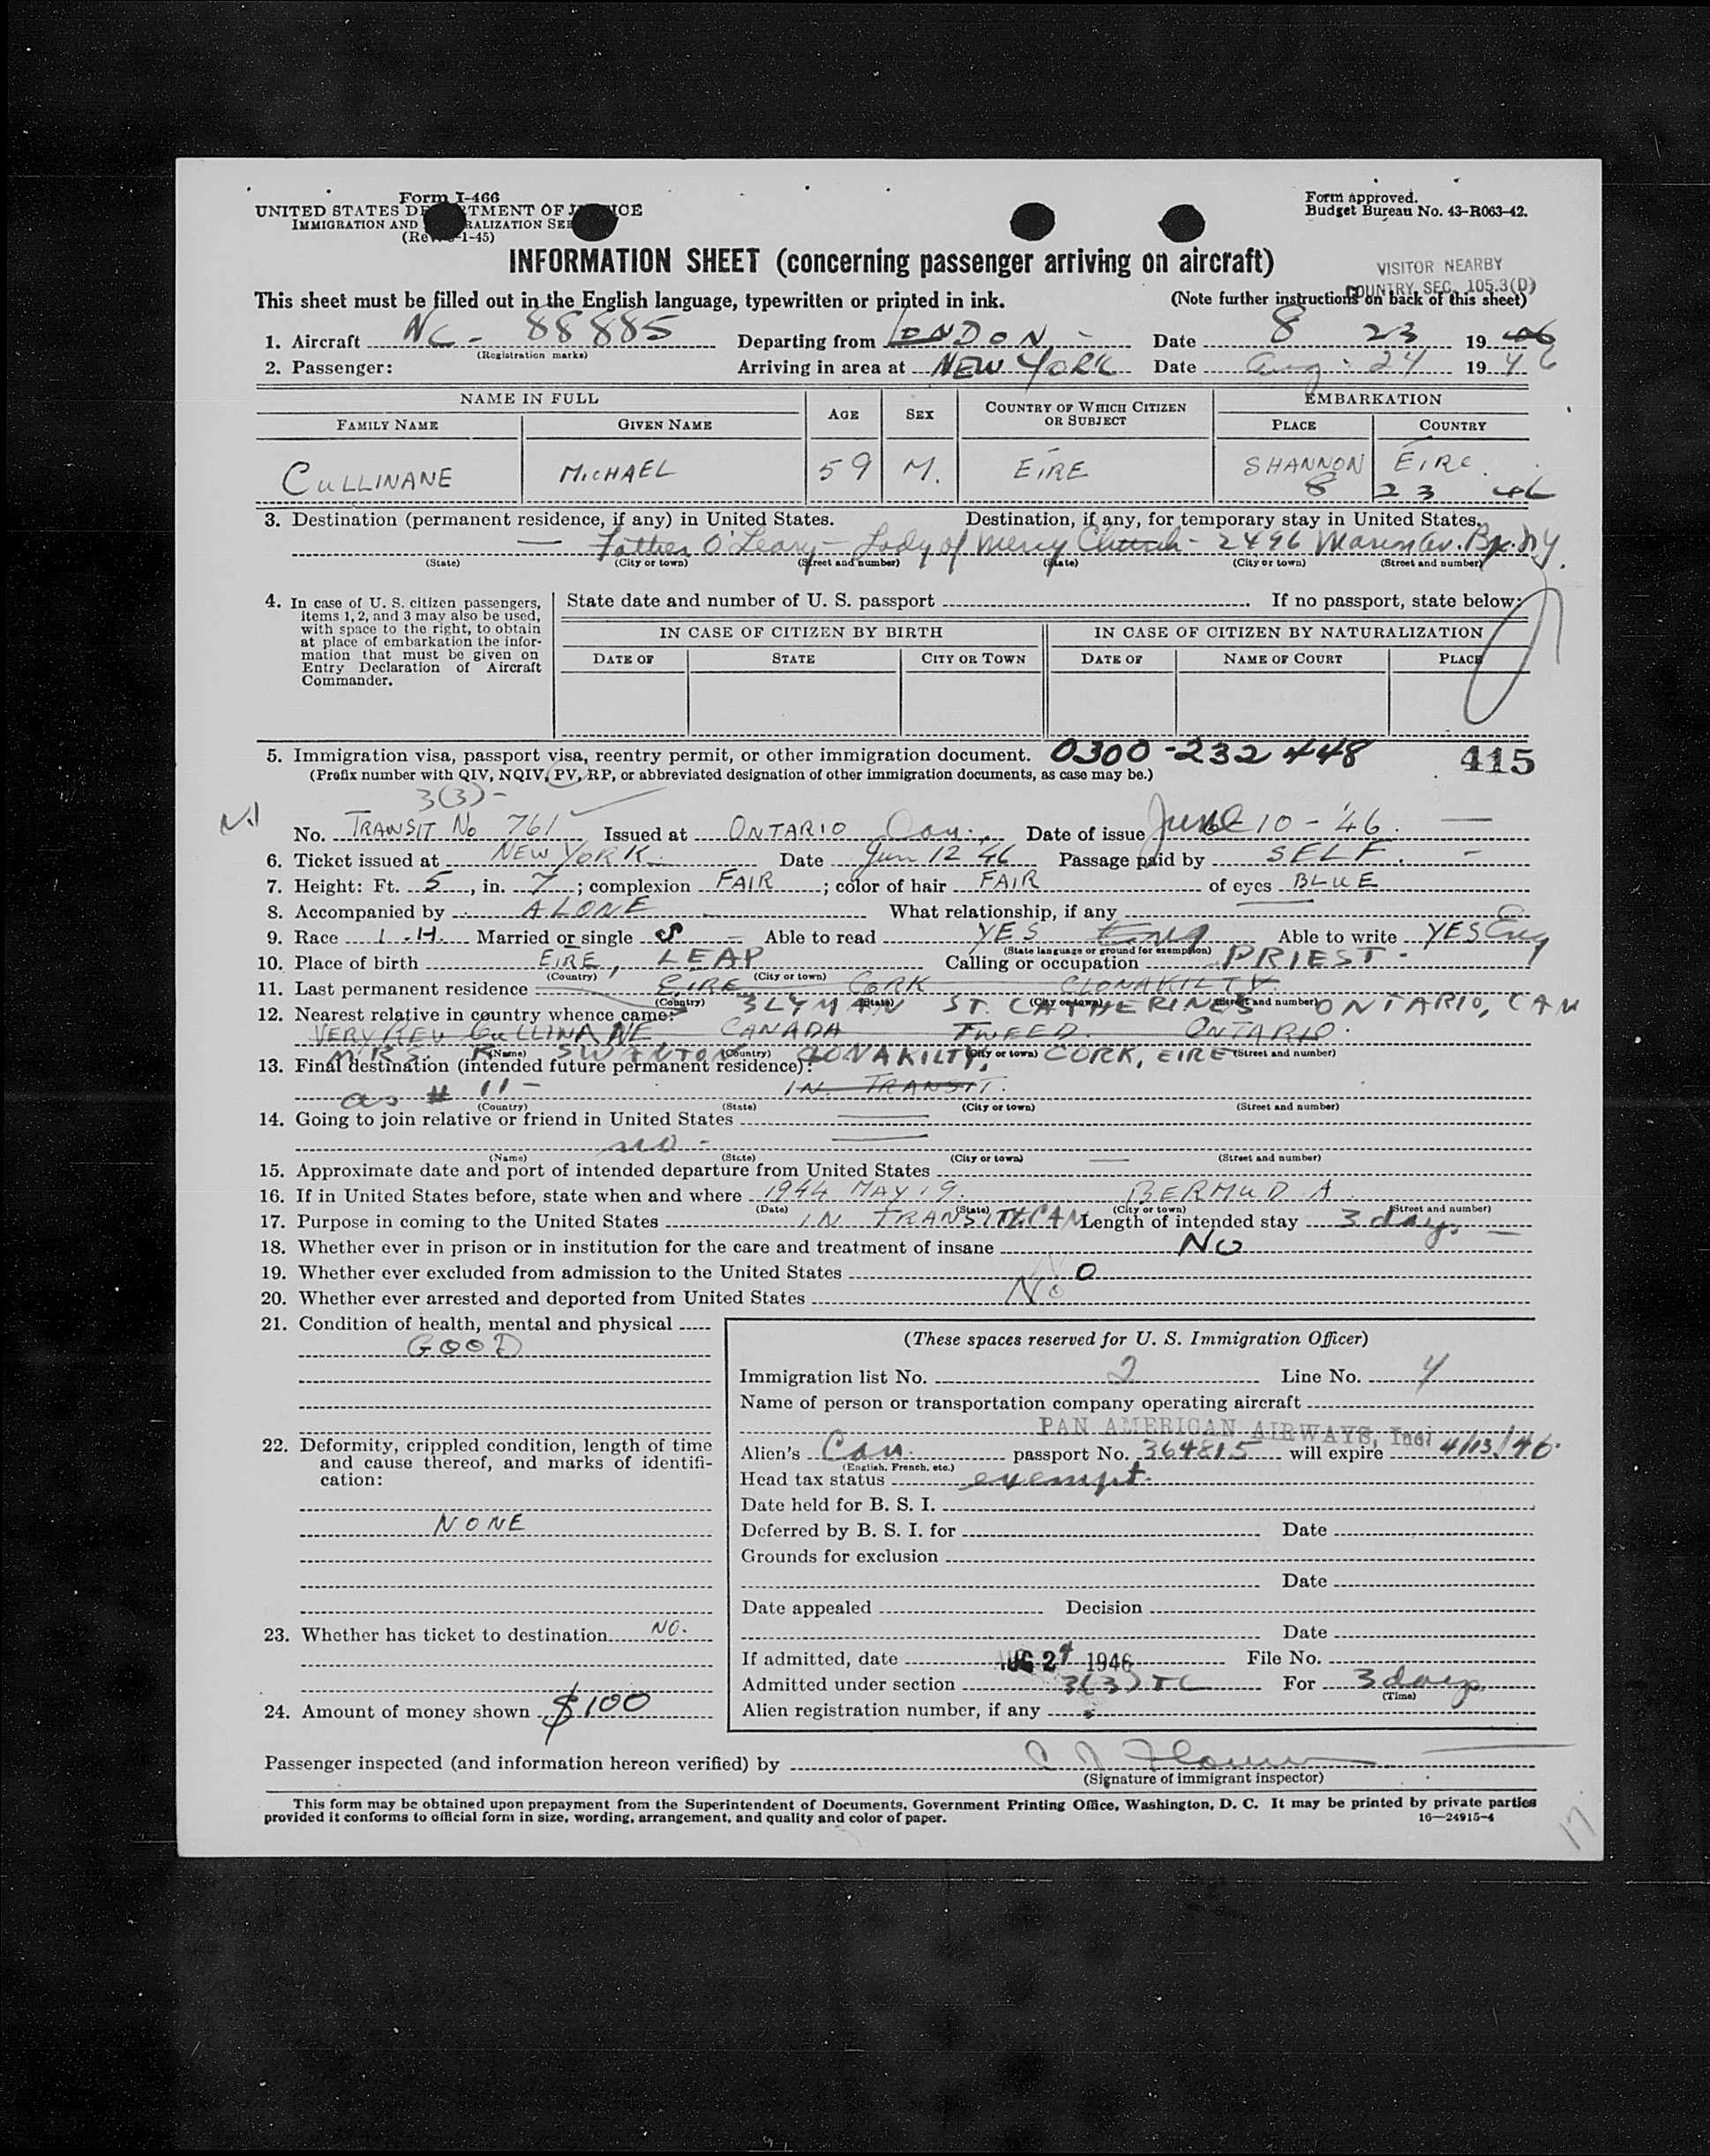 Form I-466
UNITED STATES DEPARTMENT OF JUSTICE
IMMIGRATION AND NATURALIZATION SER
(Rev. 1-45)
Form approved.
Budget Bureau No. 43-R063-42.
INFORMATION SHEET (concerning passenger arriving on aircraft)
VISITOR NEARBY
COUNTRY SEC. 105.3(D)
This sheet must be filled out in the English language, typewritten or printed in ink. (Note further instructions on back of this sheet)
1. Aircraft NC - 88885 Departing from LONDON Date 8 23 1946
(Registration marks)
2. Passenger: Arriving in area at NEW YORK Date Aug. 24 1946
NAME IN FULL AGE SEX COUNTRY OF WHICH CITIZEN OR SUBJECT EMBARKATION
FAMILY NAME GIVEN NAME PLACE COUNTRY
CULLINANE MICHAEL 59 M. EIRE SHANNON EIRE.
8 23 46
3. Destination (permanent residence, if any) in United States. Destination, if any, for temporary stay in United States.
— Father O'Leary - Lady of Mercy Church - 2496 Marion Av. Bx. NY.
(State) (City or town) (Street and number) (State) (City or town) (Street and number)
4. In case of U. S. citizen passengers, items 1, 2, and 3 may also be used, with space to the right, to obtain at place of embarkation the information that must be given on Entry Declaration of Aircraft Commander.
State date and number of U. S. passport . If no passport, state below:
IN CASE OF CITIZEN BY BIRTH IN CASE OF CITIZEN BY NATURALIZATION
DATE OF STATE CITY OR TOWN DATE OF NAME OF COURT PLACE
5. Immigration visa, passport visa, reentry permit, or other immigration document. 0300-232448 415
(Prefix number with QIV, NQIV, PV, RP, or abbreviated designation of other immigration documents, as case may be.)
3(3)-
No. TRANSIT No 761 Issued at ONTARIO Can. Date of issue June 10 - '46.
6. Ticket issued at NEW YORK Date Jun 12 46 Passage paid by SELF.
7. Height: Ft. 5, in. 7; complexion FAIR; color of hair FAIR of eyes BLUE
8. Accompanied by ALONE What relationship, if any
9. Race I.H. Married or single S Able to read YES Eng Able to write YES Eng
(State language or ground for exemption)
10. Place of birth EIRE, LEAP Calling or occupation PRIEST.
(Country) (City or town)
11. Last permanent residence EIRE CORK CLONAKILTY.
(Country) (State) (City or town) (Street and number)
3 LYMAN ST. CATHERINES ONTARIO, CAN
12. Nearest relative in country whence came:
VERY REV CULLINANE CANADA TWEED. ONTARIO.
(Name) (Country) (City or town) (Street and number)
MRS. R. SWANTON CLONAKILTY, CORK, EIRE
13. Final destination (intended future permanent residence):
as # 11 - IN TRANSIT.
(Country) (State) (City or town) (Street and number)
14. Going to join relative or friend in United States
no -
(Name) (State) (City or town) (Street and number)
15. Approximate date and port of intended departure from United States
16. If in United States before, state when and where 1944 MAY 19. BERMUDA.
(Date) (State) (City or town) (Street and number)
17. Purpose in coming to the United States IN TRANSIT CAN Length of intended stay 3 days
18. Whether ever in prison or in institution for the care and treatment of insane NO
19. Whether ever excluded from admission to the United States NO
20. Whether ever arrested and deported from United States No
21. Condition of health, mental and physical
GOOD
22. Deformity, crippled condition, length of time and cause thereof, and marks of identification:
NONE
23. Whether has ticket to destination NO.
24. Amount of money shown $100
(These spaces reserved for U. S. Immigration Officer)
Immigration list No. 2 Line No. 4
Name of person or transportation company operating aircraft
PAN AMERICAN AIRWAYS, Inc.
Alien's Can. passport No. 364815 will expire 4/13/46.
(English, French, etc.)
Head tax status exempt.
Date held for B. S. I.
Deferred by B. S. I. for Date
Grounds for exclusion
Date
Date appealed Decision
Date
If admitted, date AUG 24 1946 File No.
Admitted under section 3(3) TC For 3 days
(Time)
Alien registration number, if any
Passenger inspected (and information hereon verified) by
(Signature of immigrant inspector)
This form may be obtained upon prepayment from the Superintendent of Documents, Government Printing Office, Washington, D. C. It may be printed by private parties
provided it conforms to official form in size, wording, arrangement, and quality and color of paper. 16—24915-4
17